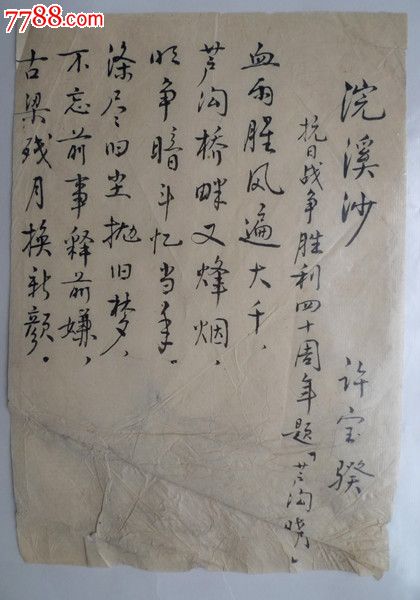 7788.com
浣溪沙 许宝骙
抗日战争胜利四十周年题“芦沟晓月”
血雨腥风遍大千，
芦沟桥畔又烽烟，
明争暗斗忆当年。
涤尽旧尘抛旧梦，
不忘前事释前嫌，
古梁残月换新颜。